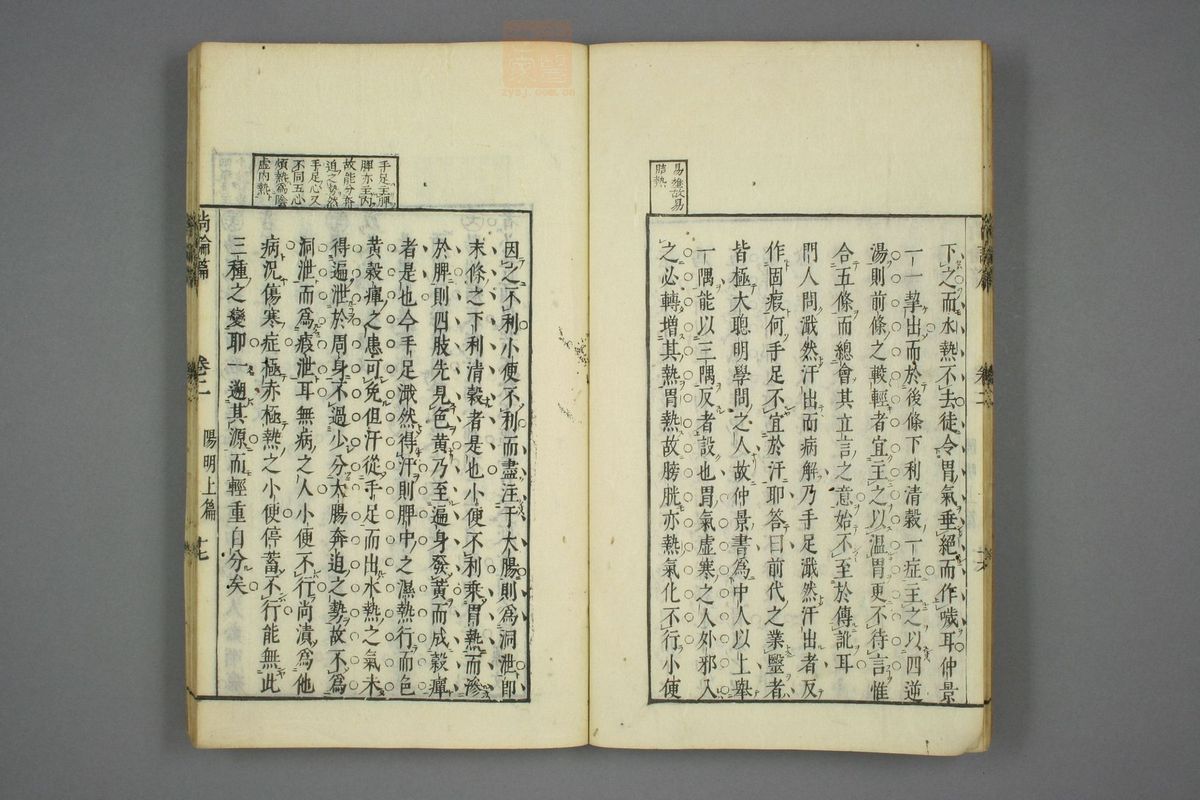 下之而水熱不去徒令胃氣垂絕而作噦耳仲景
一一挈出而於後條下利清穀一症主之以四逆
湯則前條之較輕者宜主之以溫胃更不待言惟
合五條而總會其立言之意始不至於傳訛耳
門人問濈然汗出而病解乃手足濈然汗出者反
作固瘕何手足不宜於汗耶答曰前代之業醫者
皆極大聰明學問之人故仲景書為中人以上舉
一隅能以三隅反者設也胃氣虛寒之人外邪入
之必轉增其熱胃熱故膀胱亦熱氣化不行小便
卷二
因之不利小便不利而盡注于大腸則為洞泄即
末條之下利清穀者是也小便不利乘胃熱而滲
於脾則四肢先見色黃乃至遍身發黃而成穀癉
者是也今手足濈然得汗則脾中之濕熱行而色
黃穀癉之患可免但汗從手足而出水熱之氣未
得遍泄於周身不過少分大腸奔迫之勢故不為
洞泄而為瘕泄耳無病之人小便不行尚漬為他
病況傷寒症極赤極熱之小便停蓄不行能無此
三種之變耶一遡其源而輕重自分矣
手足主脾
脾亦主內
故能分奔
迫之勢然
手足心又
不同五心
煩熱為陰
虛內熱
尚論篇
卷二
陽明上篇
十七
zysj.com.cn